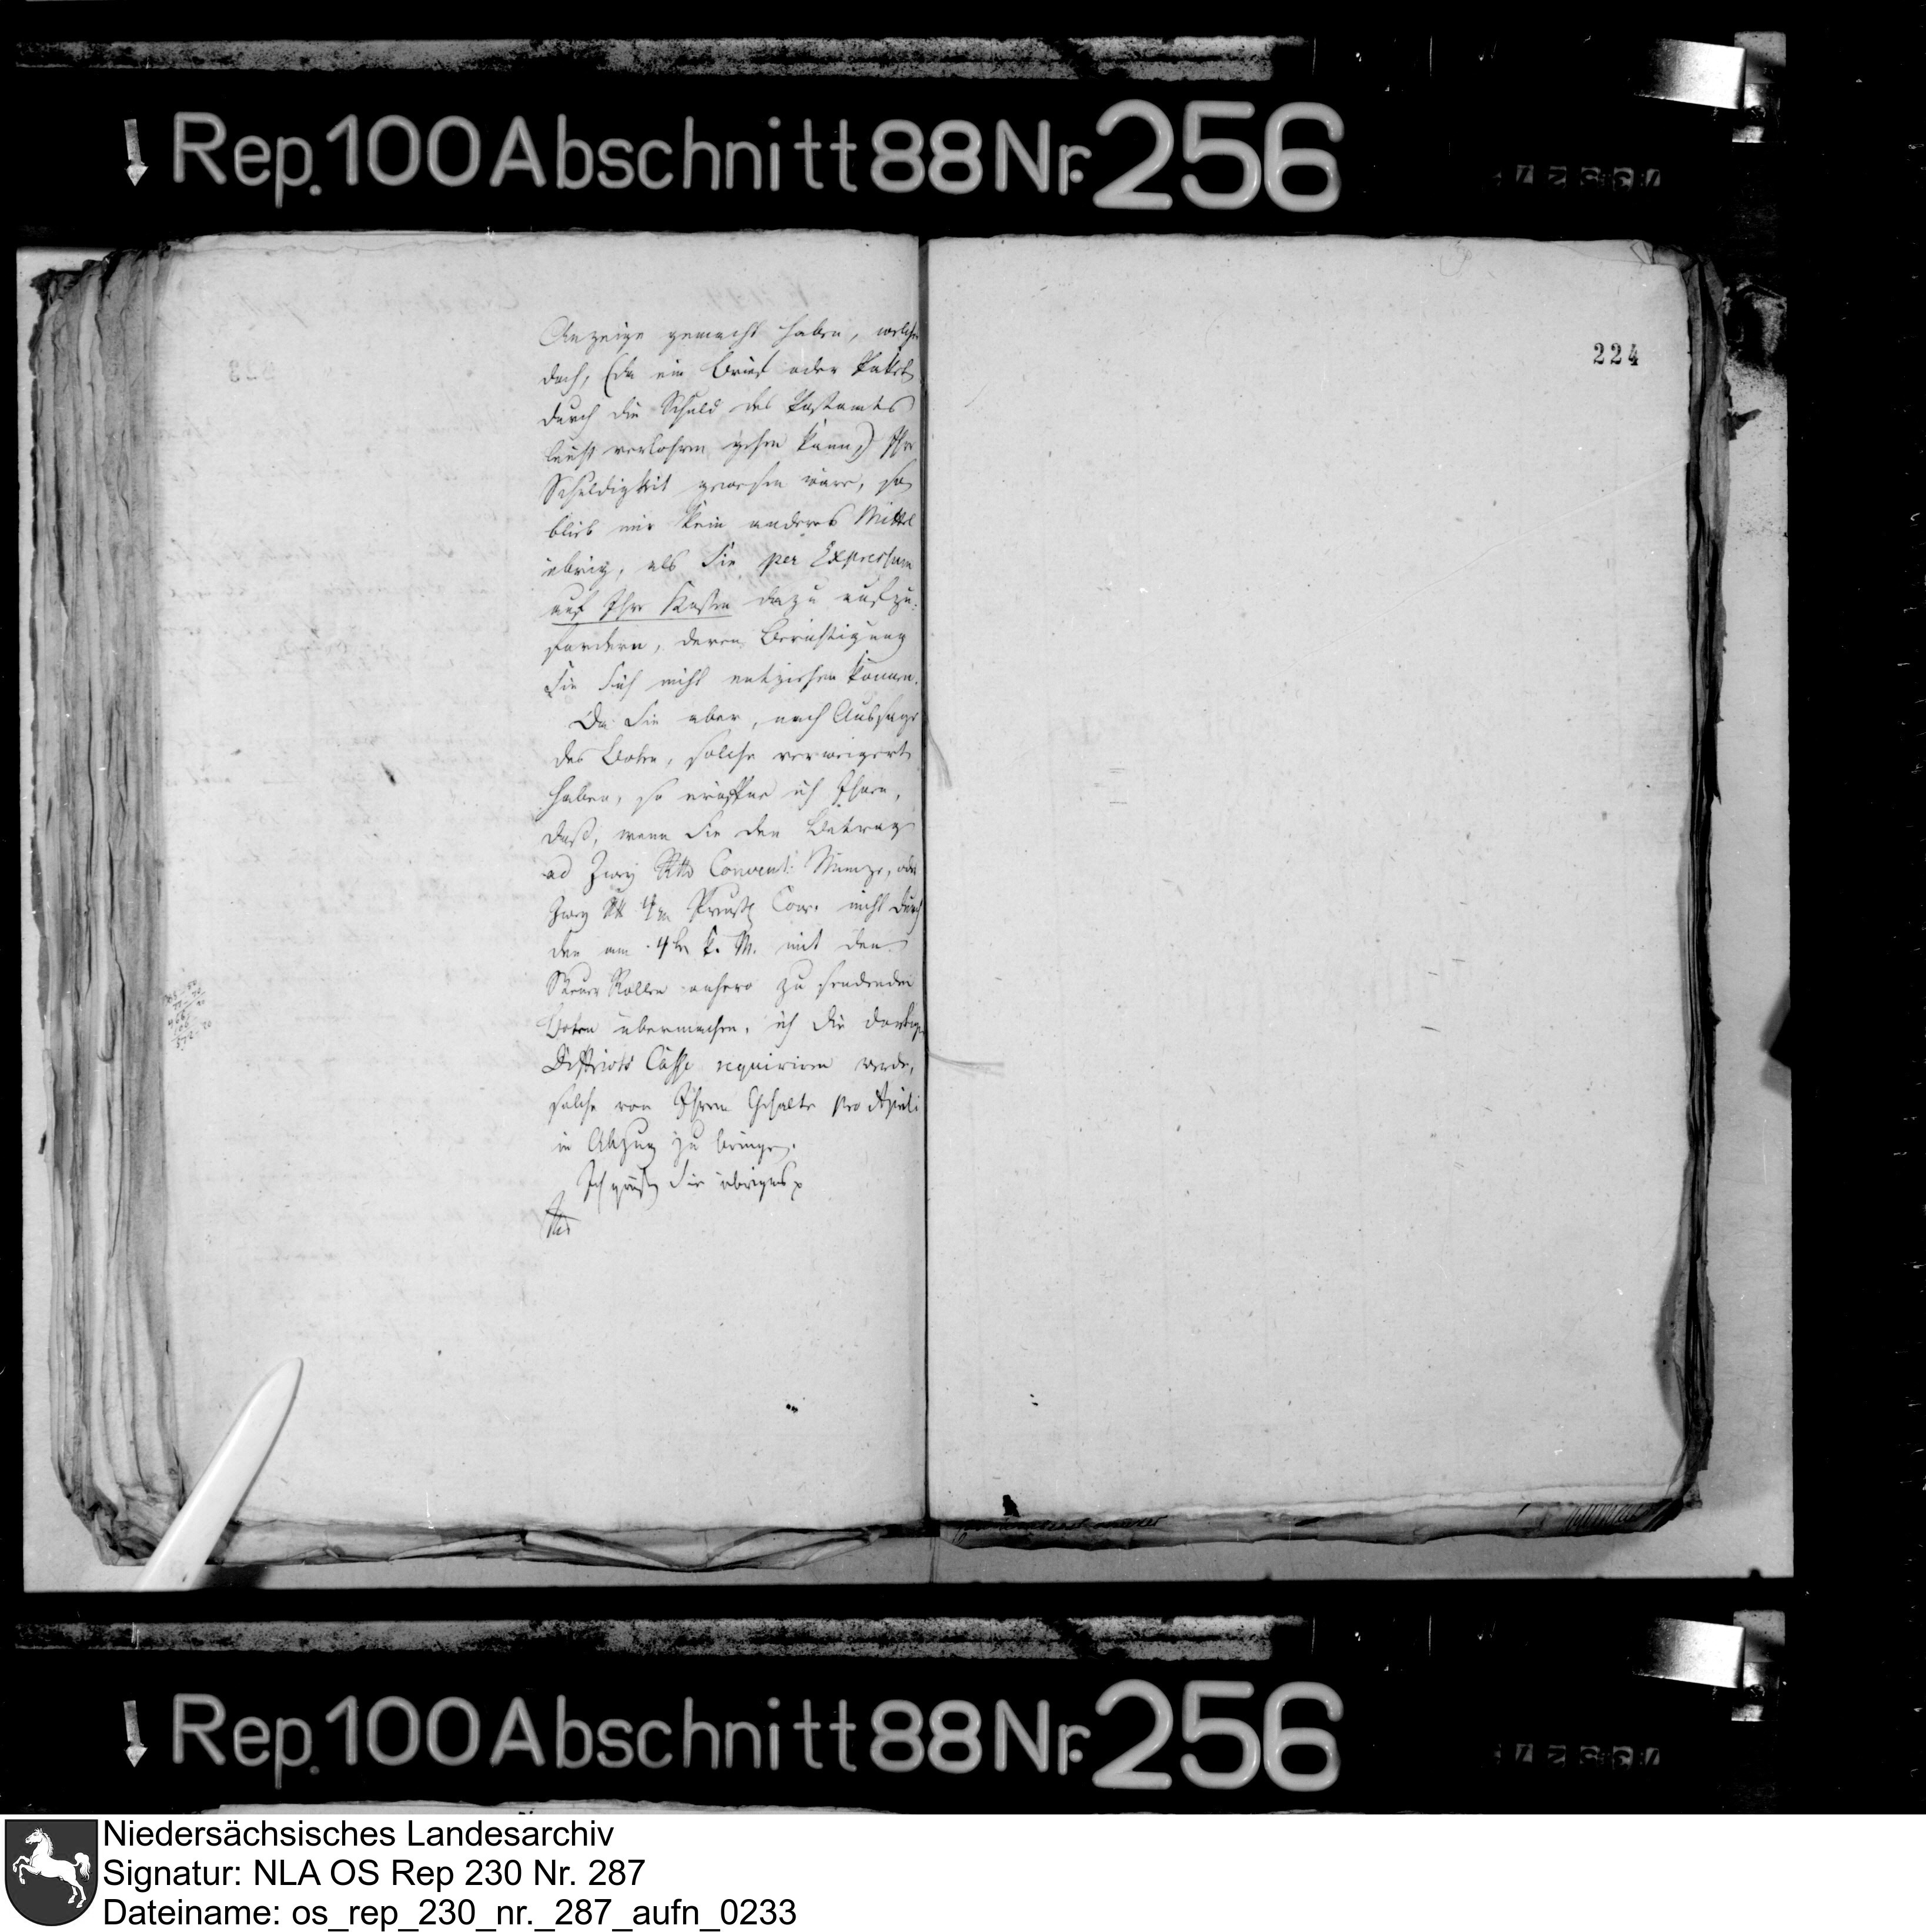 Rep. 100 Abschnitt 88 Nr. 256
Anzeige gemacht haben, welche
doch, (da ein Brief oder Paket
durch die Schuld des Postamtes
leicht verlohren gehen kann,) Ihre
Schuldigkeit gewesen wäre, so
blieb mir kein anderes Mittel
übrig, als Sie per Expressum
auf Ihre Kosten dazu aufzu:
fordern, deren Berichtigung
Sie Sich nicht entziehen können.
Da Sie aber, nach Aussage
des Boten, solche verweigert
haben, so eröffne ich Ihnen,
daß, wenn Sie den Betrag
ad Zwey Rtlr Convent: Münze, oder
Zwey Rtlr Preuß Cour. nicht durch
den am 4ten k. M. mit den
Steuer Rollen anhero zu sendenden
Boten übermachen, ich die dortige
Districts Casse requiriren werde,
solche von Ihrem Gehalte pro Aprili
in Abzug zu bringen.
Ich grüße Sie übrigens
224
Rep. 100 Abschnitt 88 Nr. 256
Niedersächsisches Landesarchiv
Signatur: NLA OS Rep 230 Nr. 287
Dateiname: os_rep_230_nr._287_aufn_0233